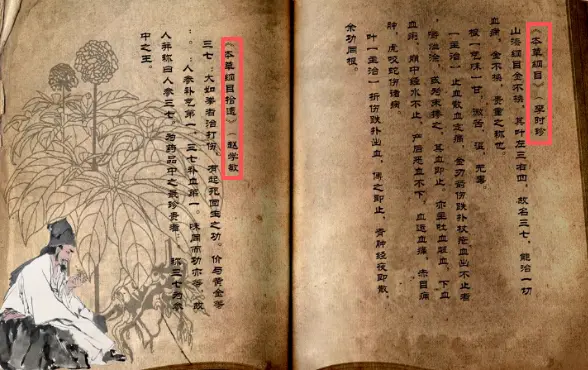 《本草纲目》 李时珍
山漆纲目金不换，其叶左三右四，故名三七，能治一切
血病，金不换，贵重之称也
根（气味）甘，微苦，温，无毒
（主治）止血散血定痛，金刃箭伤跌扑杖疮血出不止者
，嚼烂涂，或为末掺之，其血即止，亦主吐血衄血，下血
血痢，崩中经水不止，产后恶血不下，血运血痛，赤目痈
肿，虎咬蛇伤诸病。
叶（主治）折伤跌扑出血，傅之即止，青肿经夜即散，
余功同根。
《本草纲目拾遗》（赵学敏
三七：大如拳者治打伤，有起死回生之功，价与黄金等
：。：人参补艺第一，三七补血第一，味同而功亦等（故
人并称曰人参三七，为药品中之最珍贵者， 称三七为参
中之王。